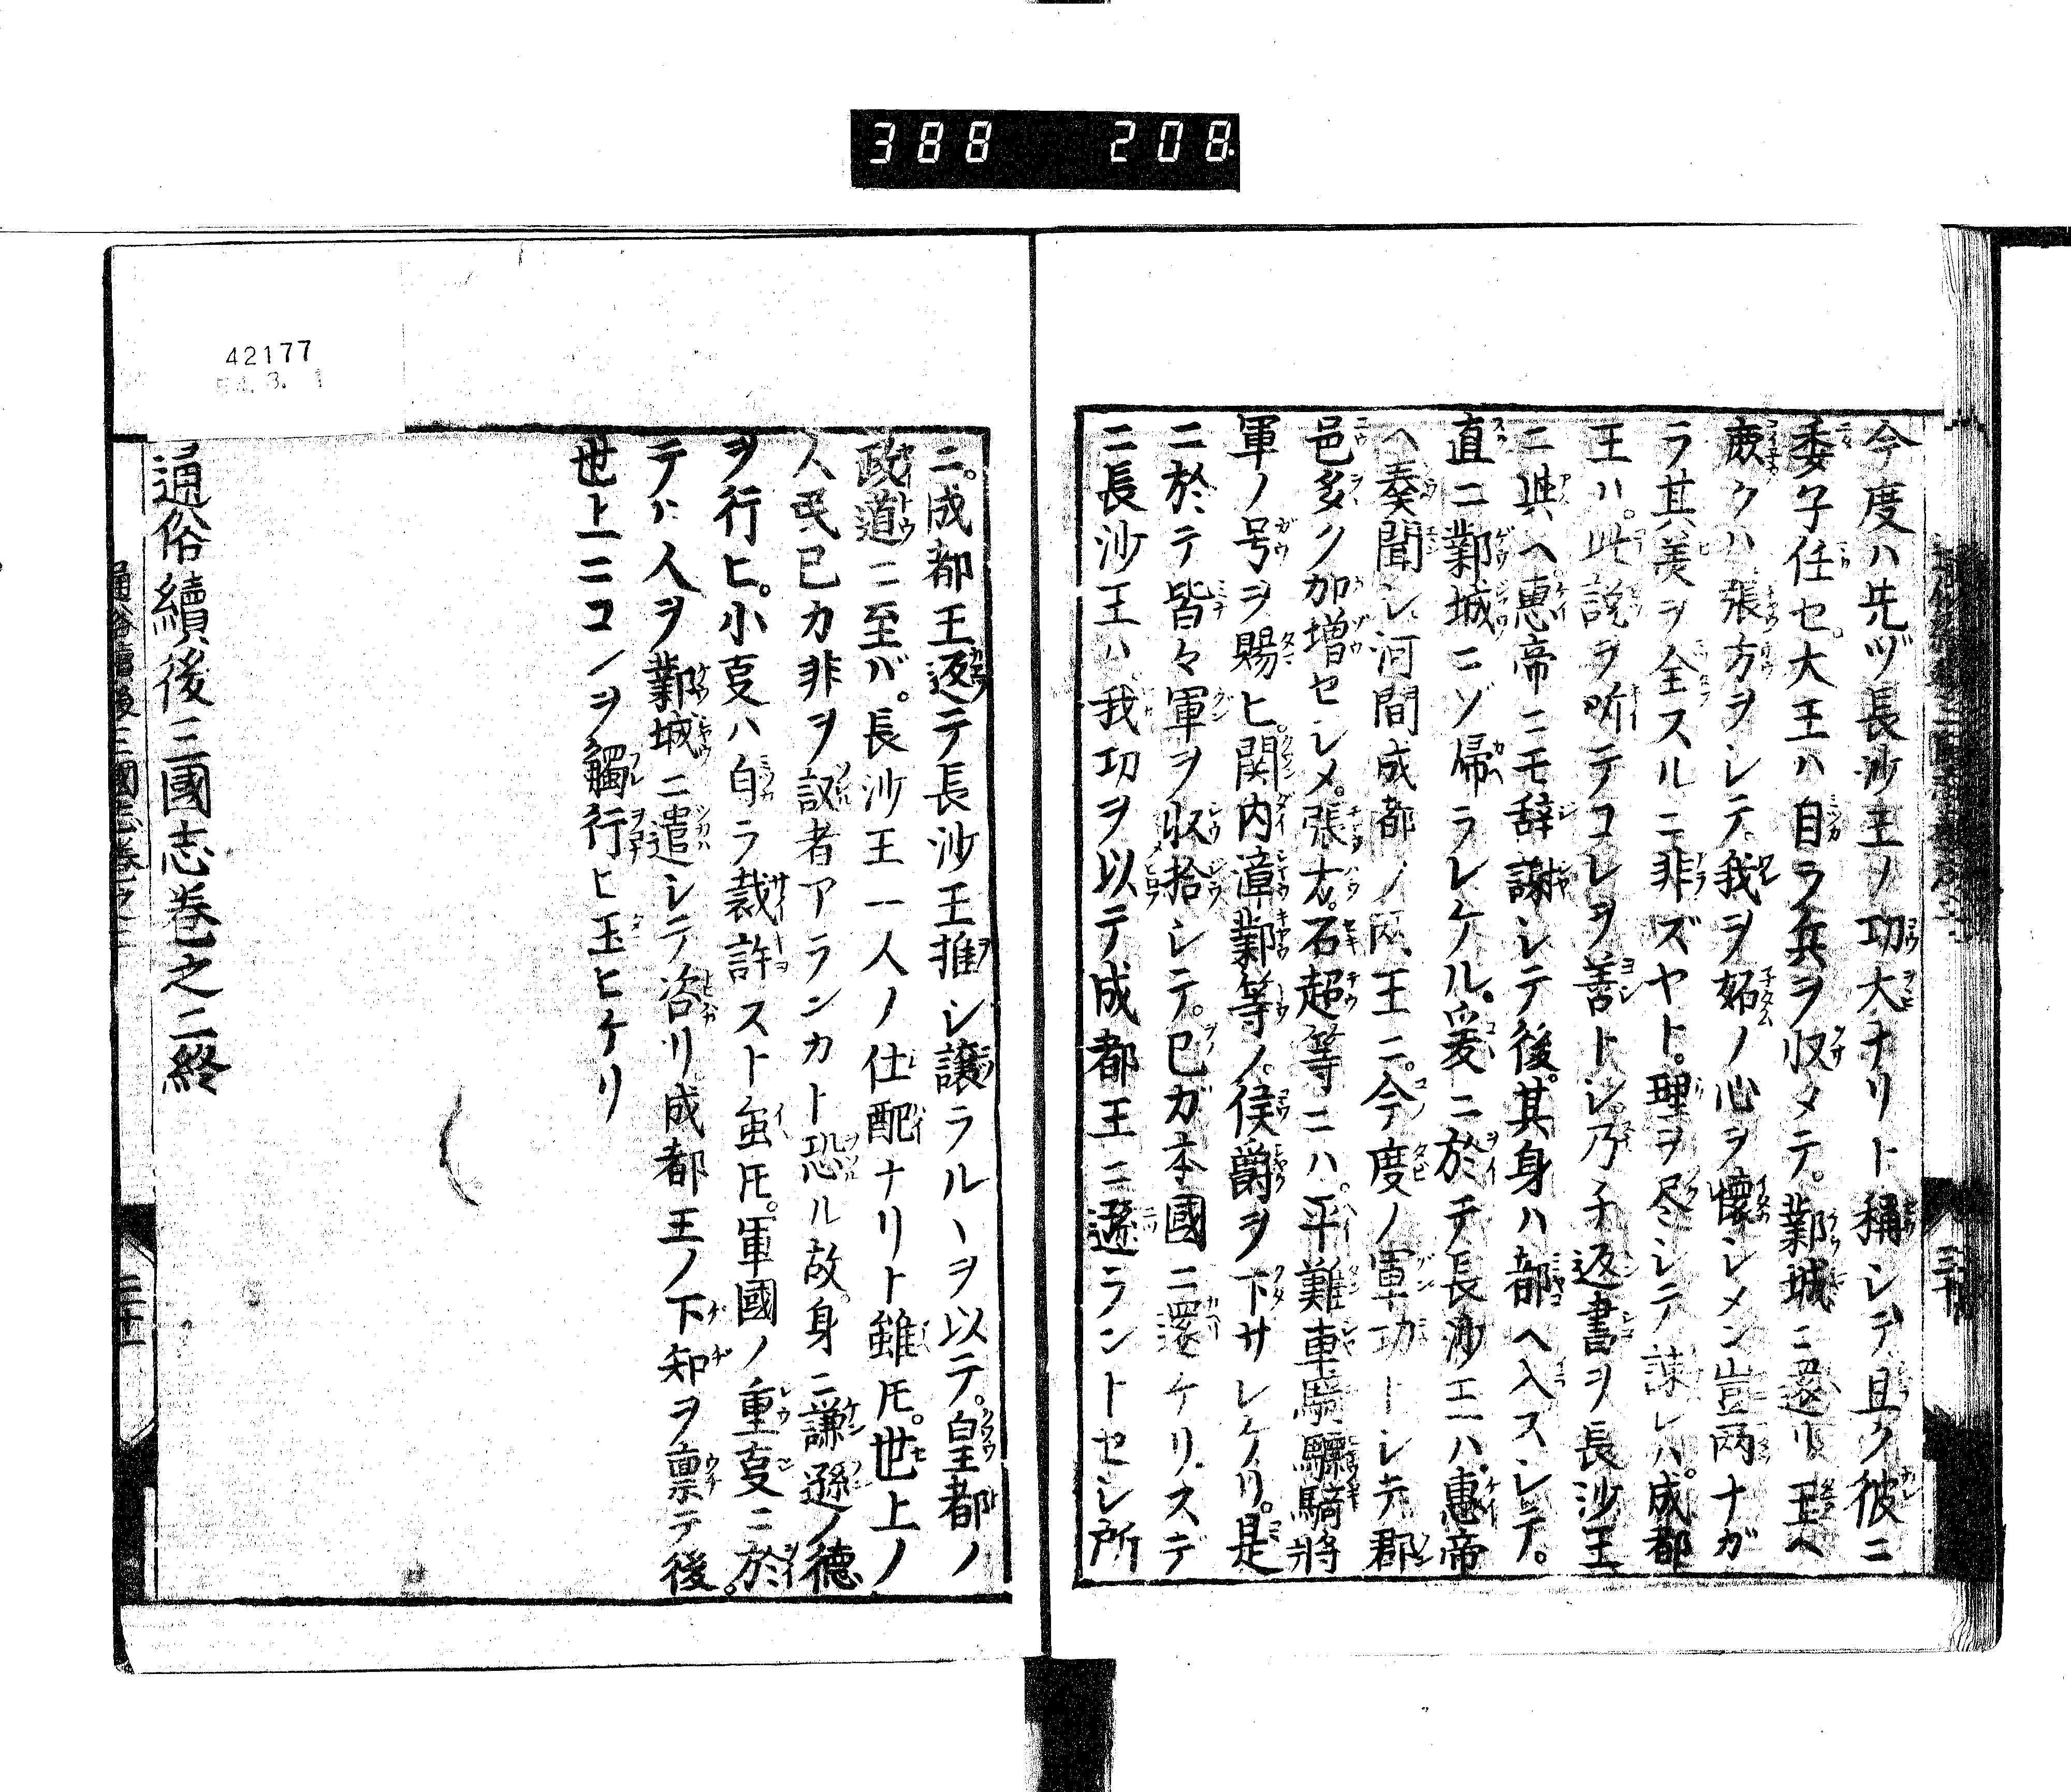 388 208
今度ハ先ヅ長沙王ノ功大ナリト稱シテ且ク彼ニ
委子任セ。大王ハ自ラ兵ヲ収メテ。鄴城ニ還リ王ヘ
ハ張方ヲシテ我ヲ妬ノ心ヲ懐シメン豈両ナガ
ラ其美ヲ全スルニ非ズヤト。理ヲ尽シテ諌レハ。成都
王ハ。此説ヲ听テコレヲ善トシ。乃チ返書ヲ長沙王
ニ與ヘ惠帝ニモ辞謝シテ後。其身ハ都ヘ入スシテ。
直ニ鄴城ニゾ帰ラレケル。爰ニ於テ長沙王ハ。惠帝
ヘ奏聞シ河間成都ノ两王ニ。今度ノ軍功トシテ郡
邑多ク加増セシメ。張方。石超等ニハ。平難車騎驃騎將
軍ノ号ヲ賜ヒ。関内漳鄴等ノ。侯爵ヲ下サレケリ。是
ニ於テ皆々軍ヲ収拾シテ。已ガ本國ニ還ケリ。スデ
ニ長沙王ハ。我功ヲ以テ成都王ニ遜ラントセシ所
ニ。成都王返テ長沙王推シ譲ラルヽヲ以テ。皇都ノ
政道ニ至バ。長沙王一人ノ仕配ナリト雖𪜈。世上ノ
人民已カ非ヲ議者アランカト恐ル故。身ニ謙遜ノ徳
ヲ行ヒ。小叓ハ自ラ裁許スト虽𪜈。軍國ノ重叓ニ於
テハ人ヲ鄴城ニ遣シテ咨リ成都王ノ下知ヲ禀テ後。
世上ニコノヲ觸行ヒ玉ヒケリ
通俗續後三國志巻之二終
通俗續後三國志巻之二
三十一
42177